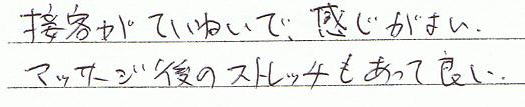 接客がていねいで、感じがよい.
マッサージ後のストレッチもあって良い.